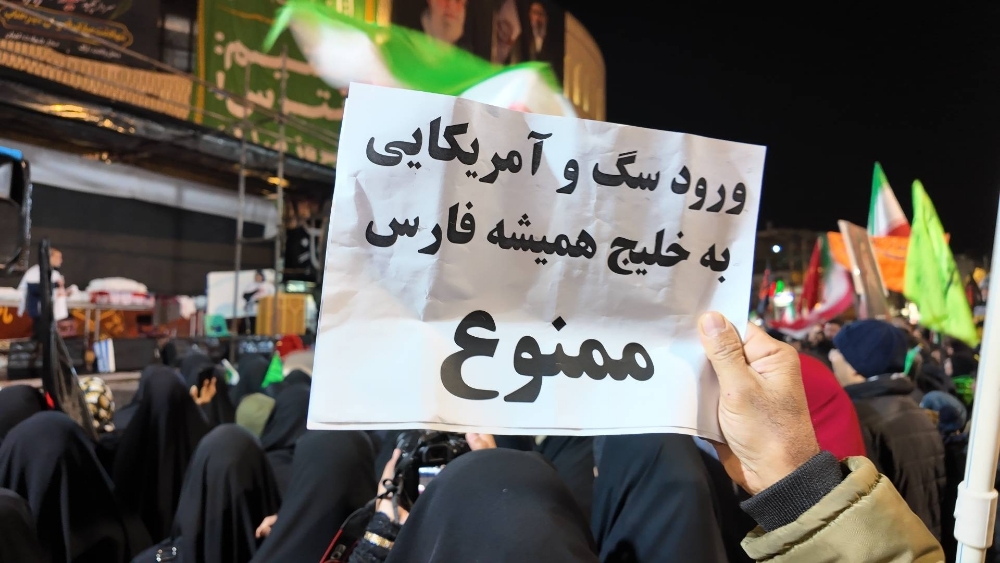 ورود سگ و آمریکایی
به خلیج همیشه فارس
ممنوع